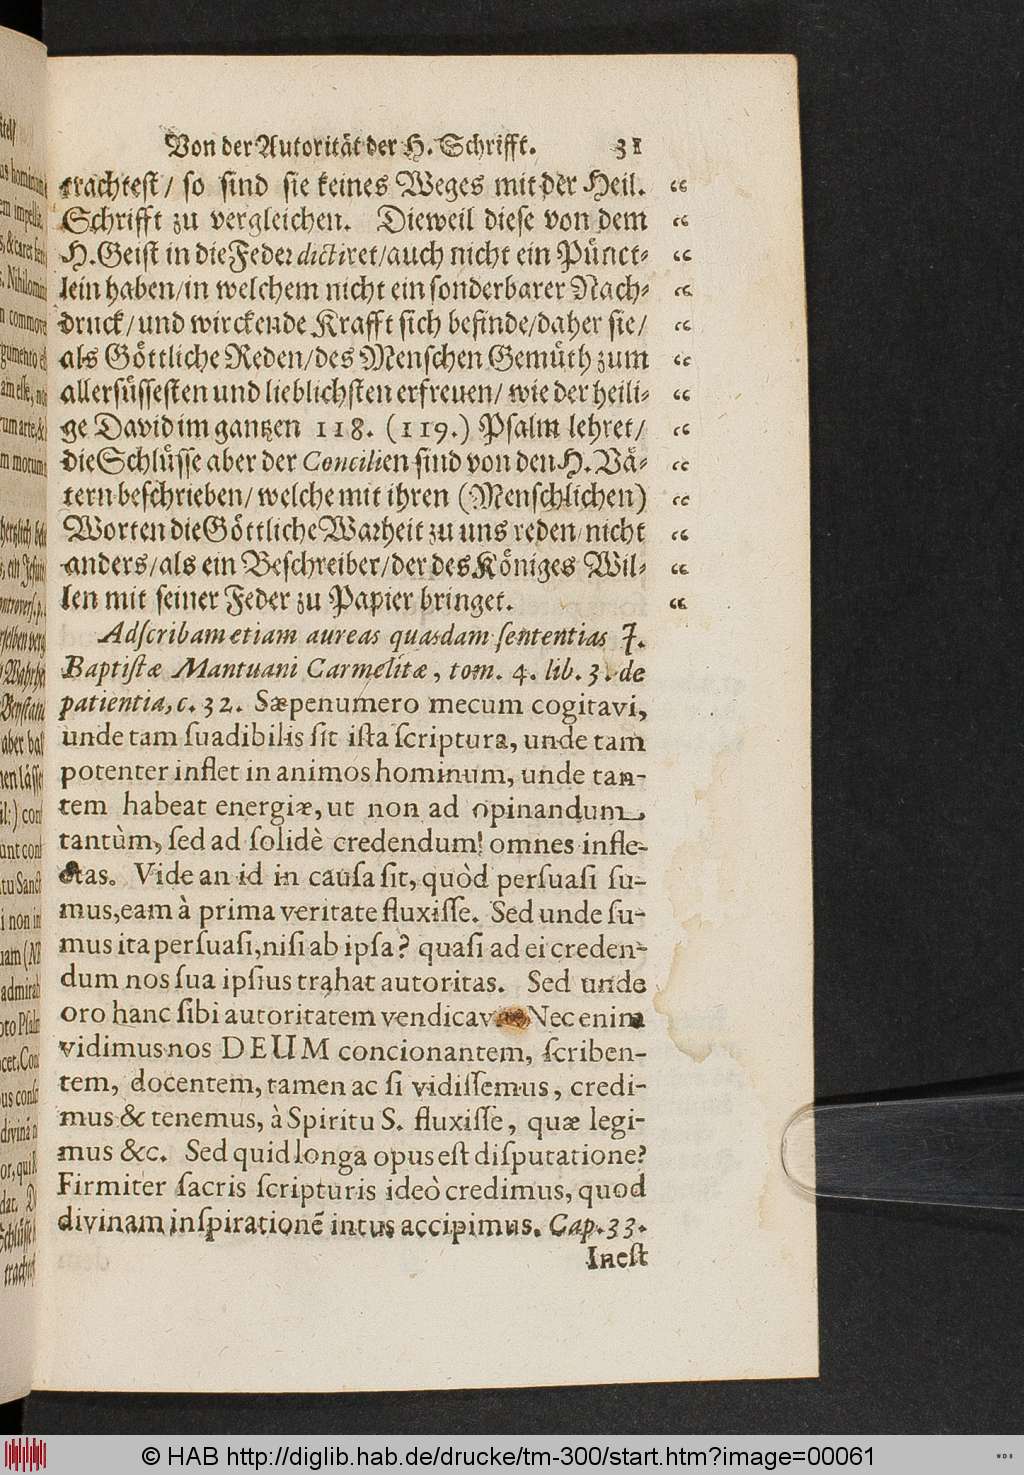 Von der Autorität der H. Schrifft. 31
trachtest/ so sind sie keines Weges mit der Heil. “
Schrifft zu vergleichen. Dieweil diese von dem “
H. Geist in die Feder dictiret/auch nicht ein Pünct- “
lein haben/in welchem nicht ein sonderbarer Nach- “
druck/und wirckende Krafft sich befinde/daher sie/ “
als Göttliche Reden/des Menschen Gemüth zum “
allersüssesten und lieblichsten erfreuen/ wie der heili- “
ge David im gantzen 118. (119.) Psalm lehret/ “
die Schlüsse aber der Concilien sind von den H. Vä- “
tern beschrieben/welche mit ihren (Menschlichen) “
Worten die Göttliche Warheit zu uns reden/nicht “
anders/als ein Beschreiber/der des Königes Wil- “
len mit seiner Feder zu Papier bringet. “
Adſcribam etiam aureas quasdam ſententias J.
Baptiſtæ Mantuani Carmelitæ, tom. 4. lib. 3. de
patientia, c. 32. Sæpenumero mecum cogitavi,
unde tam ſuadibilis ſit iſta ſcriptura, unde tam
potenter inflet in animos hominum, unde tan-
tem habeat energiæ, ut non ad opinandum
tantùm, ſed ad ſolidè credendum! omnes infle-
ctas. Vide an id in cauſa ſit, quòd perſuaſi ſu-
mus, eam à prima veritate fluxiſſe. Sed unde ſu-
mus ita perſuaſi, niſi ab ipſa? quaſi ad ei creden-
dum nos ſua ipſius trahat autoritas. Sed unde
oro hanc ſibi autoritatem vendicav Nec enim
vidimus nos DEUM concionantem, ſcriben-
tem, docentem, tamen ac ſi vidiſſemus, credi-
mus & tenemus, à Spiritu S. fluxiſſe, quæ legi-
mus &c. Sed quid longa opus eſt diſputatione?
Firmiter ſacris ſcripturis ideò credimus, quod
divinam inſpirationẽ intus accipimus. Cap. 33.
Ineſt
© HAB http://diglib.hab.de/drucke/tm-300/start.htm?image=00061